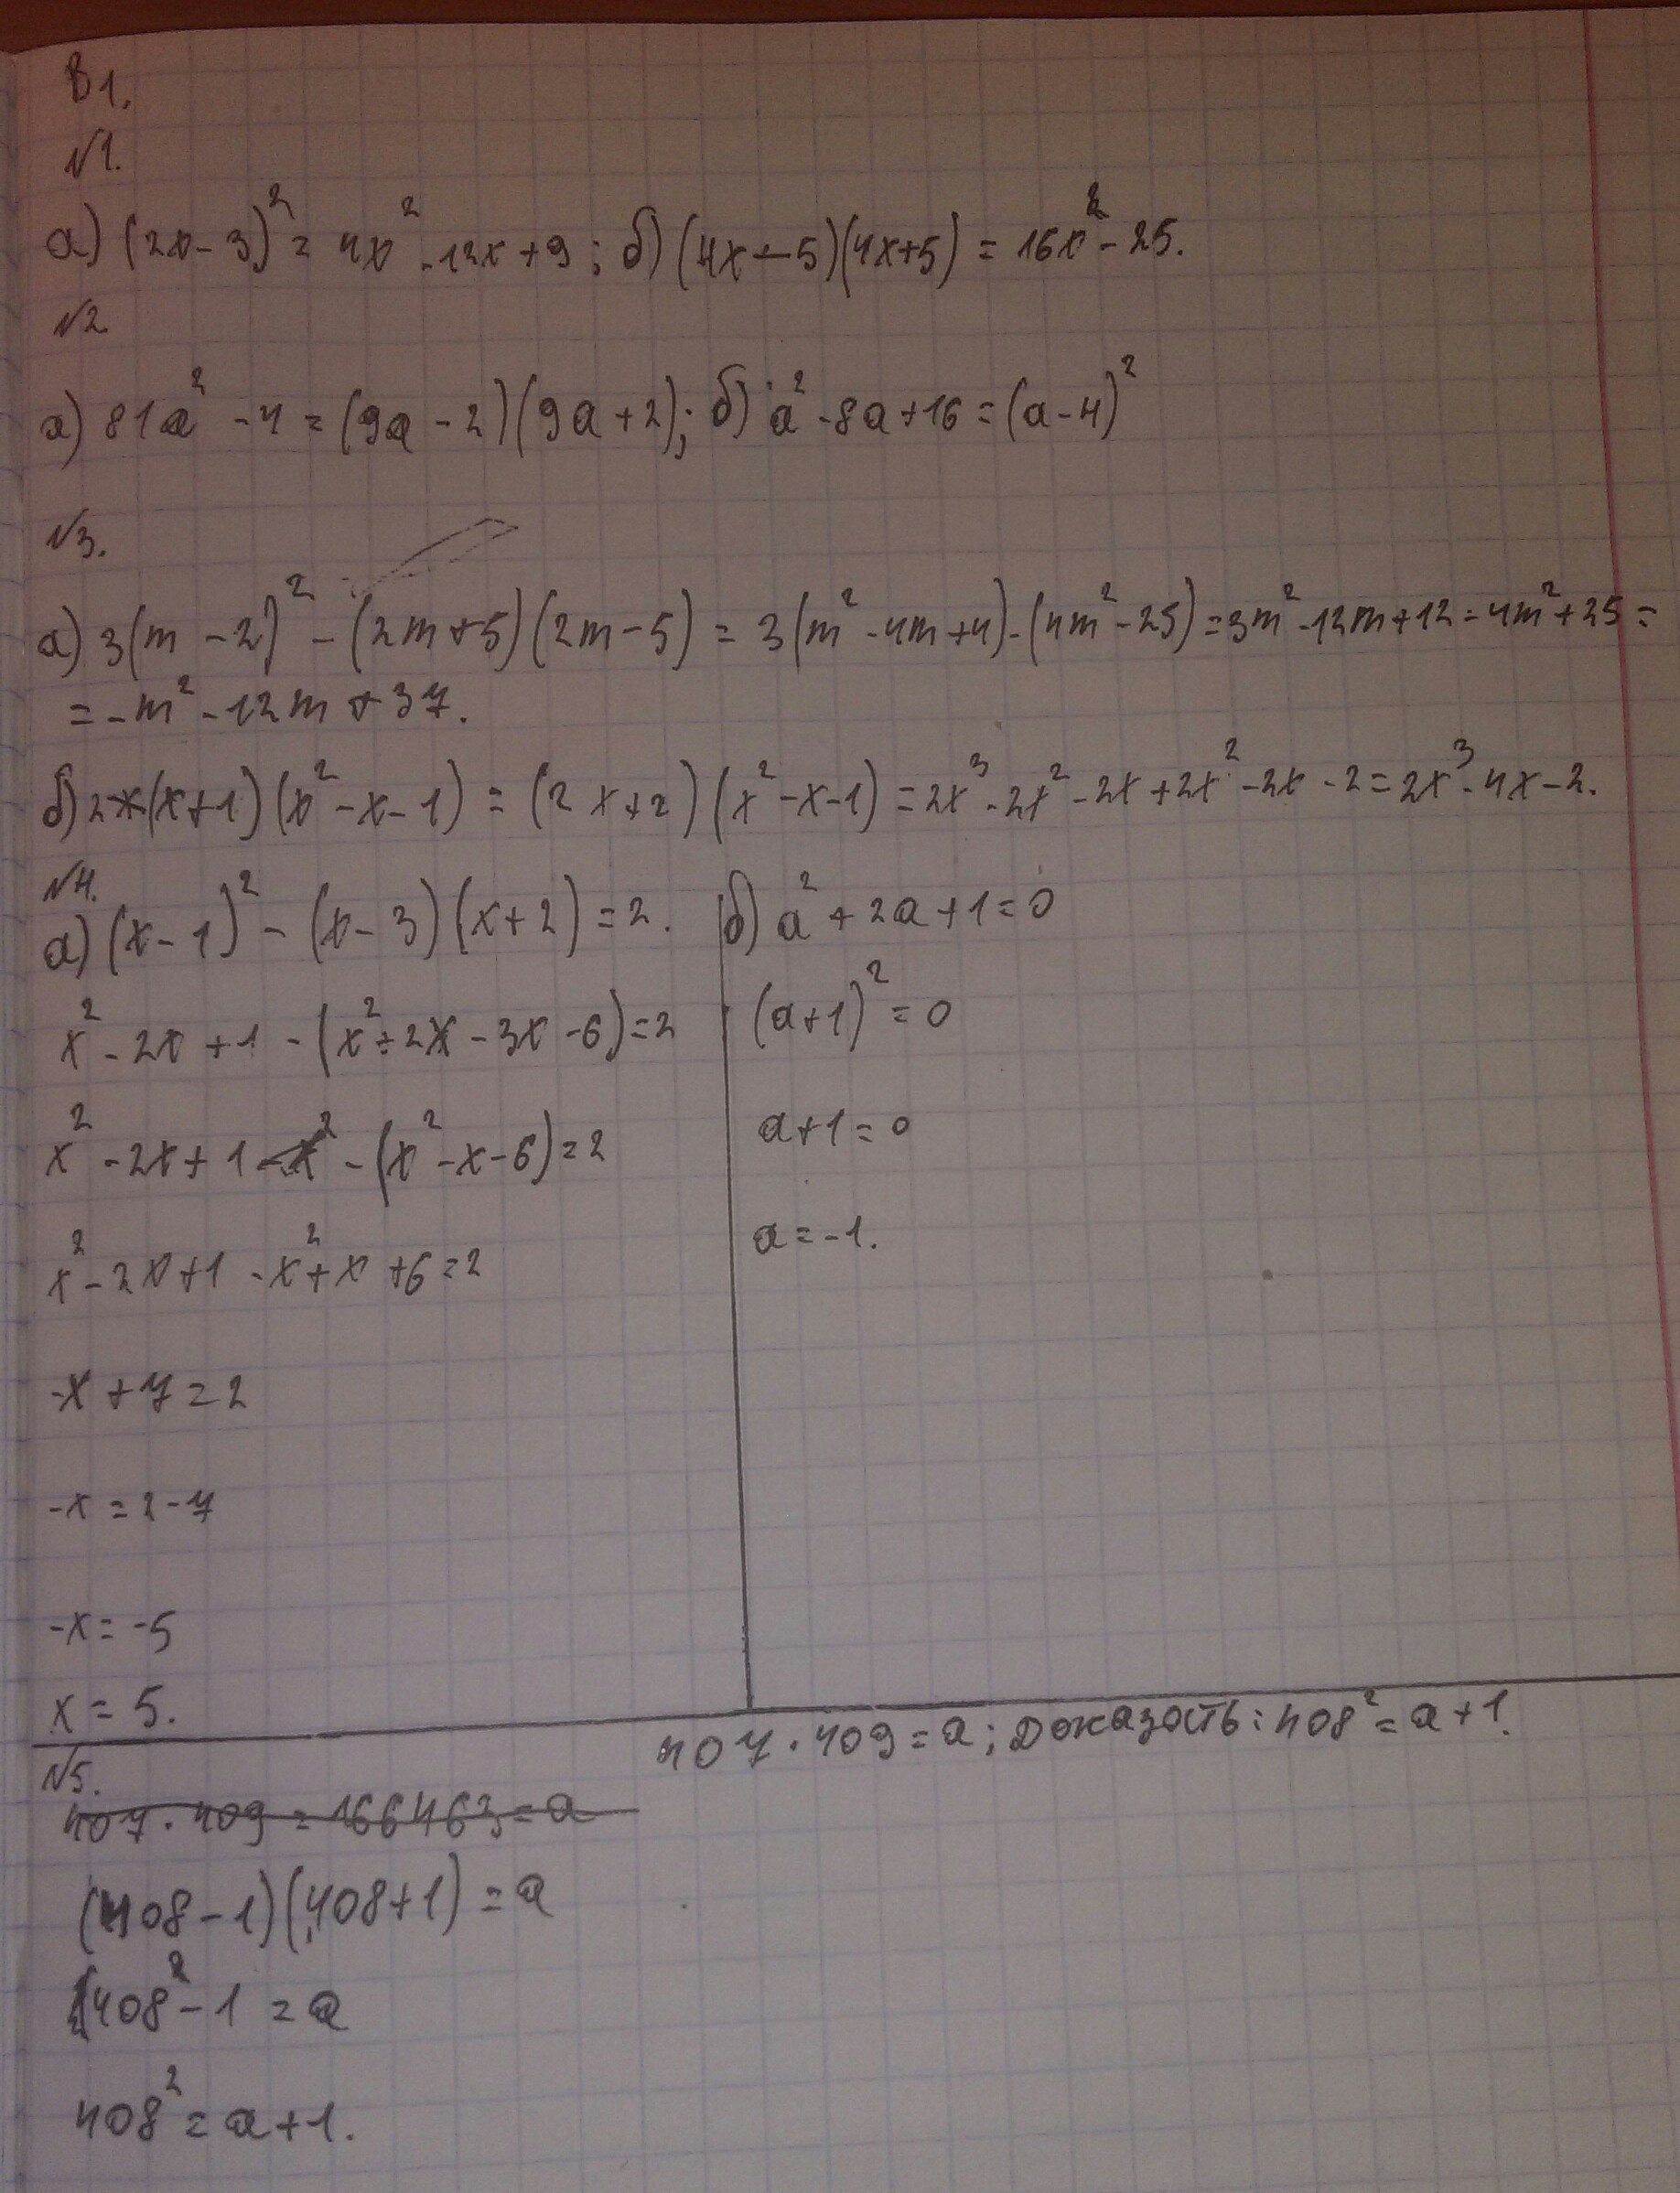 В1.
№1.
а) (2x - 3)² = 4x² - 12x + 9; б) (4x - 5)(4x+5) = 16x² - 25.
№2
а) 81a² - 4 = (9a - 2)(9a + 2); б) a² - 8a + 16 = (a - 4)²
№3.
а) 3(m - 2)² - (2m + 5)(2m - 5) = 3(m² - 4m + 4) - (4m² - 25) = 3m² - 12m + 12 - 4m² + 25 =
= -m² - 12m + 37.
б) 2(x+1)(x² - x - 1) = (2x + 2)(x² - x - 1) = 2x³ - 2x² - 2x + 2x² - 2x - 2 = 2x³ - 4x - 2.
№4.
а) (x - 1)² - (x - 3)(x + 2) = 2.
x² - 2x + 1 - (x² + 2x - 3x - 6) = 2
x² - 2x + 1 - (x² - x - 6) = 2
x² - 2x + 1 - x² + x + 6 = 2
-x + 7 = 2
-x = 2 - 7
-x = -5
x = 5.
б) a² + 2a + 1 = 0
(a+1)² = 0
a + 1 = 0
a = -1.
№5.
407 · 409 = a; Доказать: 408² = a + 1.
407 · 409 = 166463 = a
(408 - 1)(408 + 1) = a
408² - 1 = a
408² = a + 1.